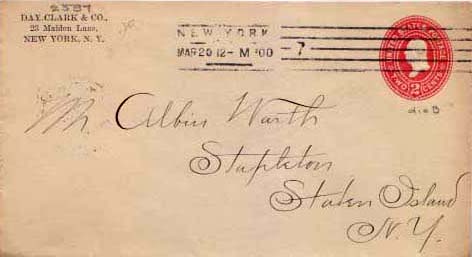 2387
DAY, CLARK & CO.,
23 Maiden Lane,
NEW YORK, N. Y.
NEW YORK
MAR 20 12-M 00
7
UNITED STATES POSTAGE
2
TWO CENTS
Mr Albin Warth
Stapleton
Staten Island
N.Y.